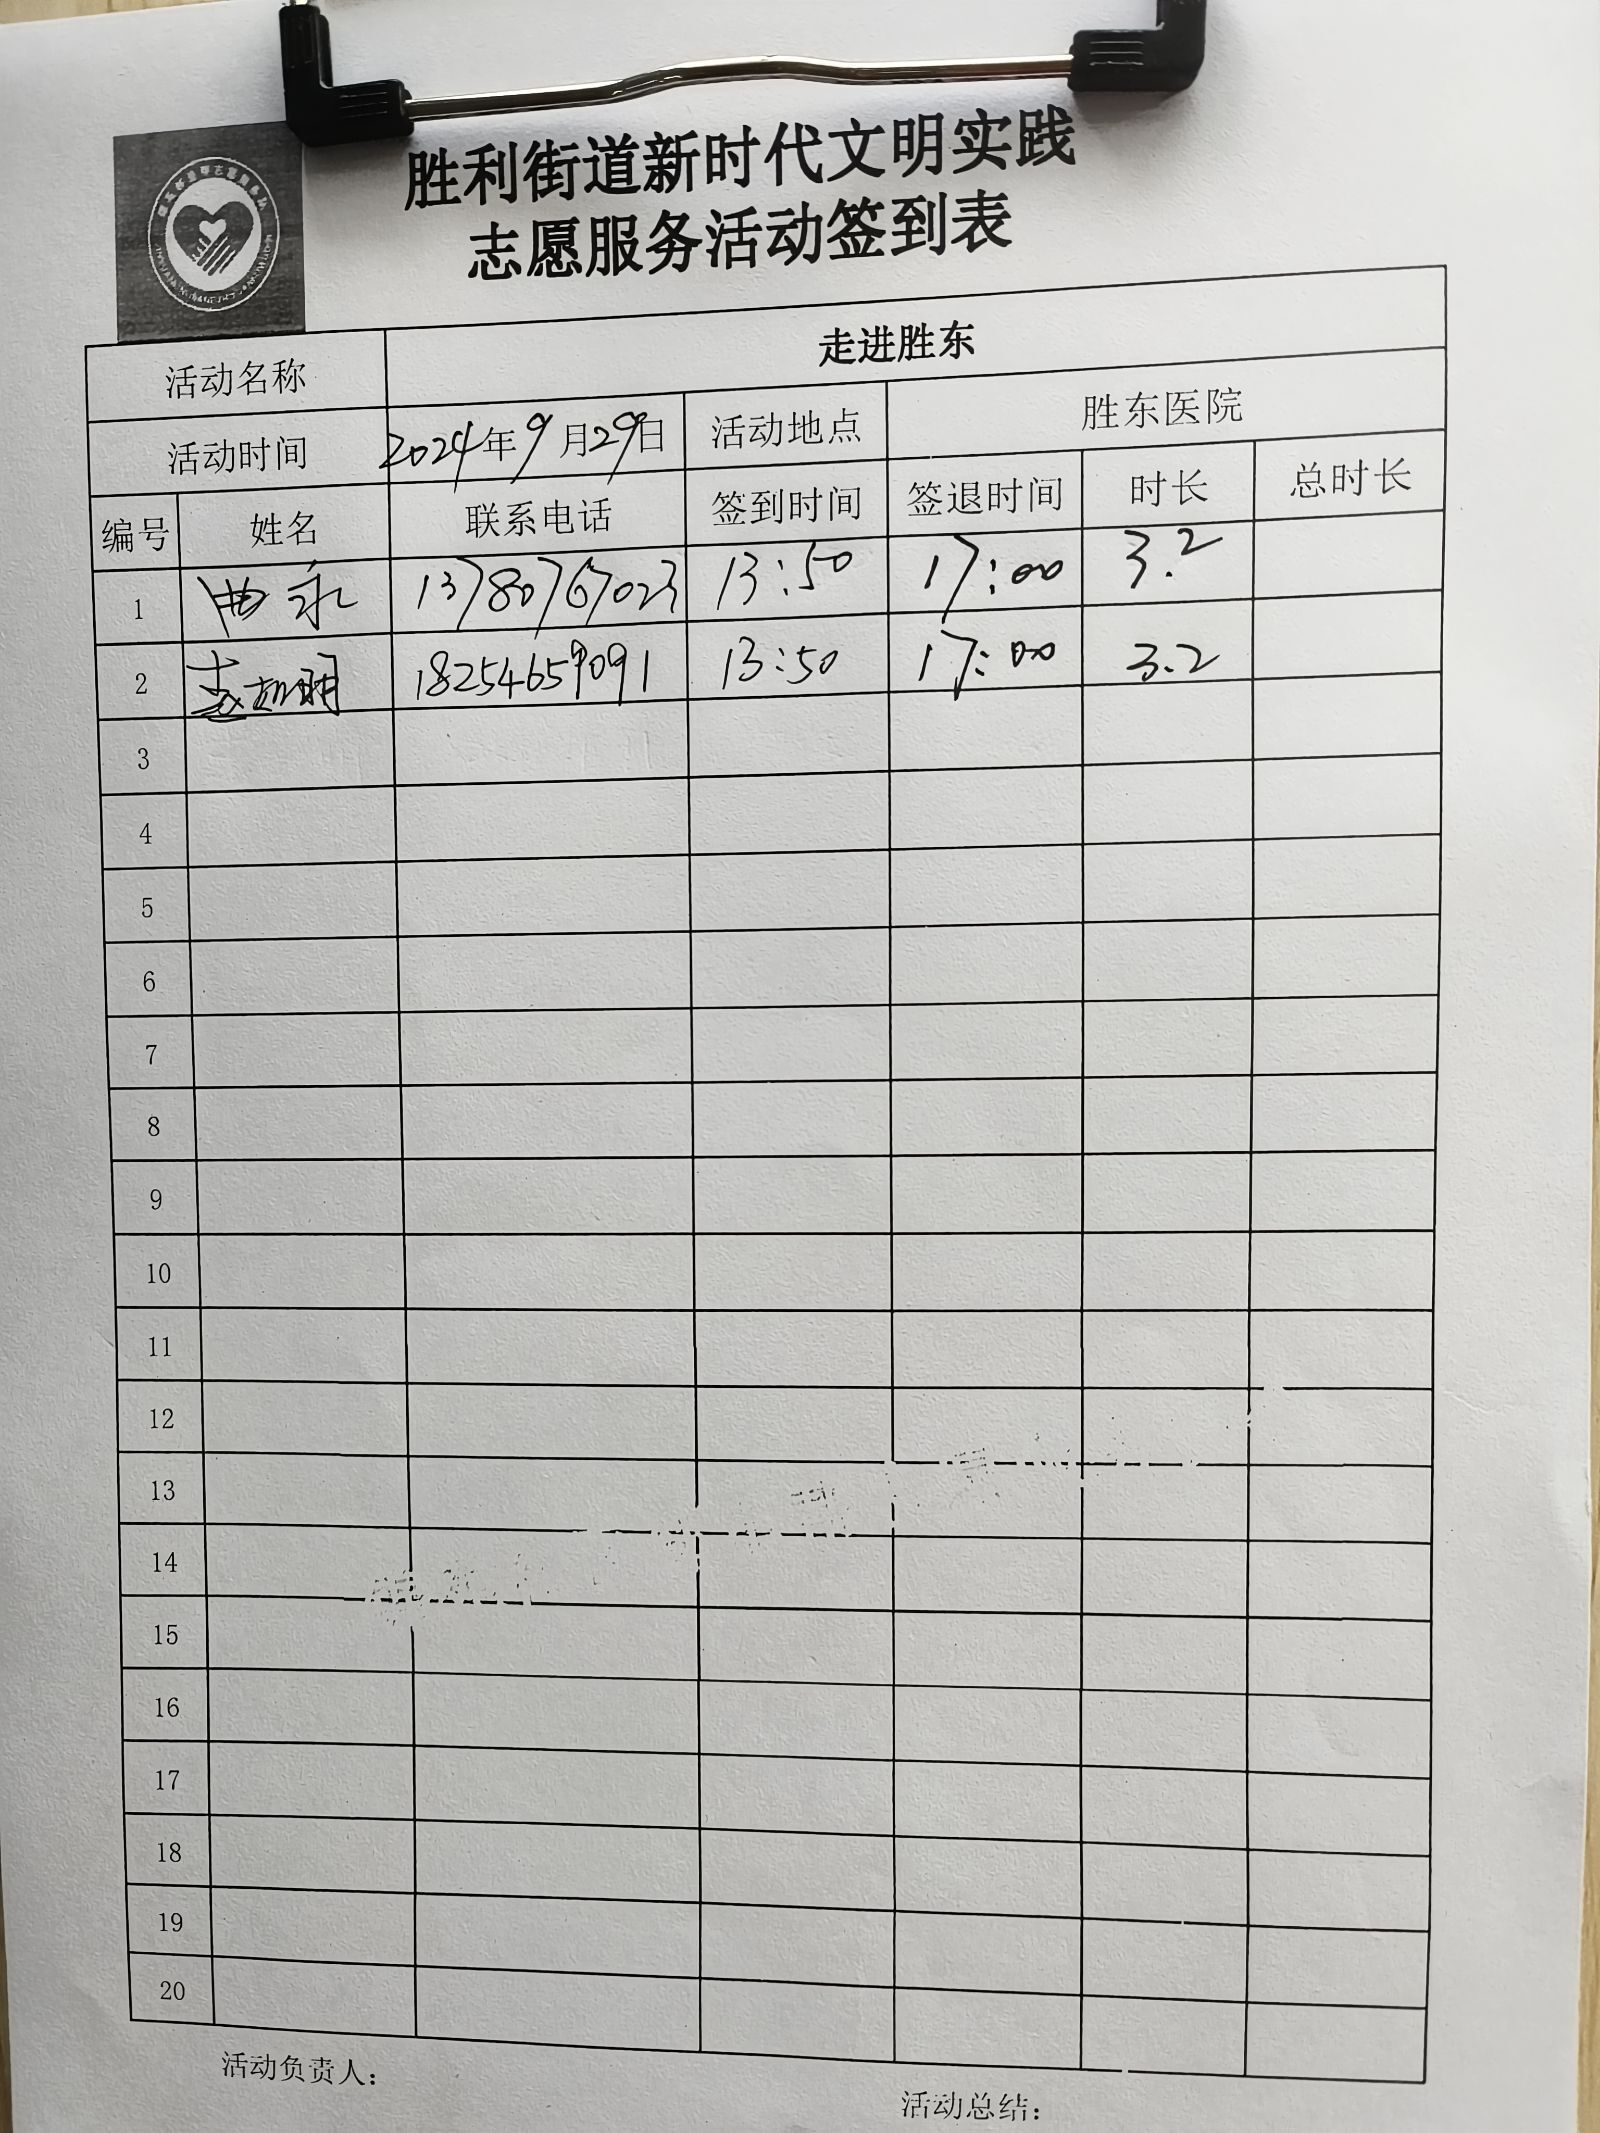 胜利街道新时代文明实践
志愿服务活动签到表
活动名称 走进胜东
活动时间 2024年9月29日 活动地点 胜东医院
编号 姓名 联系电话 签到时间 签退时间 时长 总时长
1 曲永 13780767023 13:50 17:00 3.2
2 18254659091 13:50 17:00 3.2
3
4
5
6
7
8
9
10
11
12
13
14
15
16
17
18
19
20
活动负责人：
活动总结：